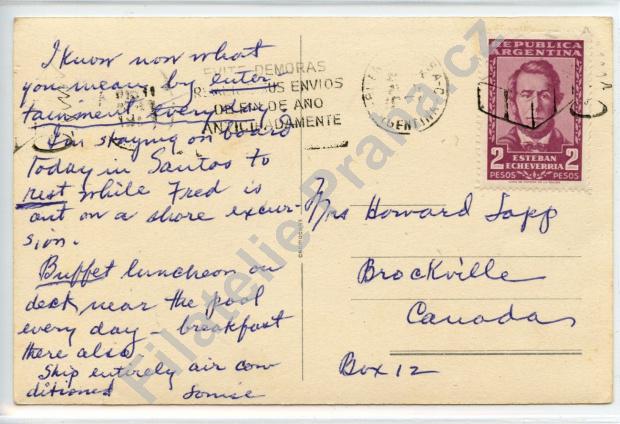 I know now what
you mean by enter-
tainment everyday.
I'm staying on board
today in Santos to
rest while Fred is
out on a shore excur-
sion.
Buffet luncheon on
deck near the pool
every day - breakfast
there also
Ship entirely air con
ditioned
EVITE DEMORAS
SUS ENVIOS
DE FIN DE AÑO
ANTICIPADAMENTE
REPUBLICA
ARGENTINA
ESTEBAN
ECHEVERRIA
2 PESOS 2 PESOS
Mrs Howard Sapp
Brockville
Canada
Box 12
Filatelie-Praha.cz